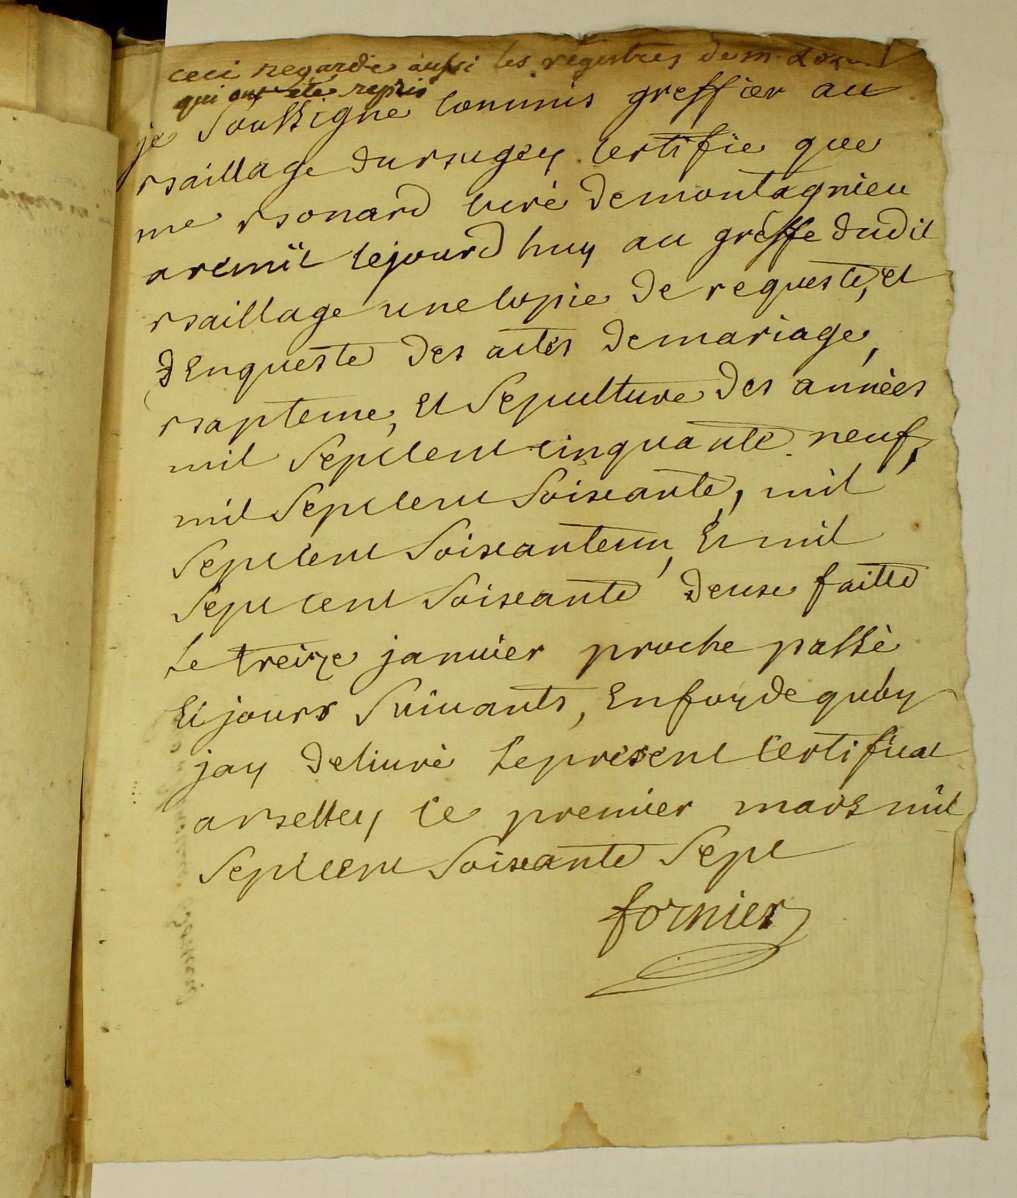 ceci regarde aussi les registres de mr
qui ont été repris
je soussigné commis greffier au
bailliage du bugey certifie que
me bonard curé demontagnieu
aremit cejourd huy au greffe dudit
bailliage une copie de requeste, et
d'enqueste des actes demariage,
bapteme, et sepulture des années
mil septcent cinquante neuf,
mil septcent soixante, mil
septcent soixanteun, et mil
sept cent soixante deuse faitte
le treize janvier proche passé
et jours suivants, enfoy de quoy
jay delivré leprésent certificat
abelley ce premier mars mil
septcent soixante sept
fornier